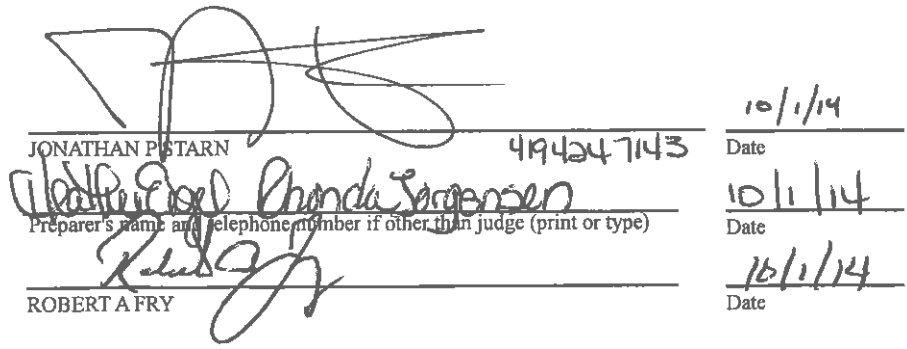 10/1/14
JONATHAN P STARN 4194247143 Date
Heather Eigel Rhonda Jorgensen 10/1/14
Preparer's name and telephone number if other than judge (print or type) Date
10/1/14
ROBERT A FRY Date